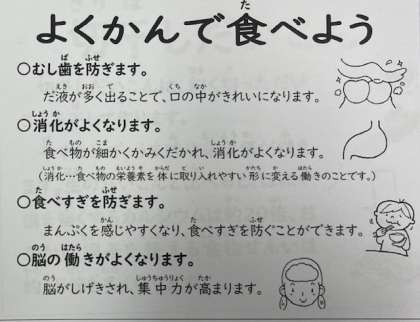 よくかんで食べよう
○むし歯を防ぎます。
だ液が多く出ることで、口の中がきれいになります。
○消化がよくなります。
食べ物が細かくかみくだかれ、消化がよくなります。
(消化…食べ物の栄養素を体に取り入れやすい形に変える働きのことです。)
○食べすぎを防ぎます。
まんぷくを感じやすくなり、食べすぎを防ぐことができます。
○脳の働きがよくなります。
脳がしげきされ、集中力が高まります。